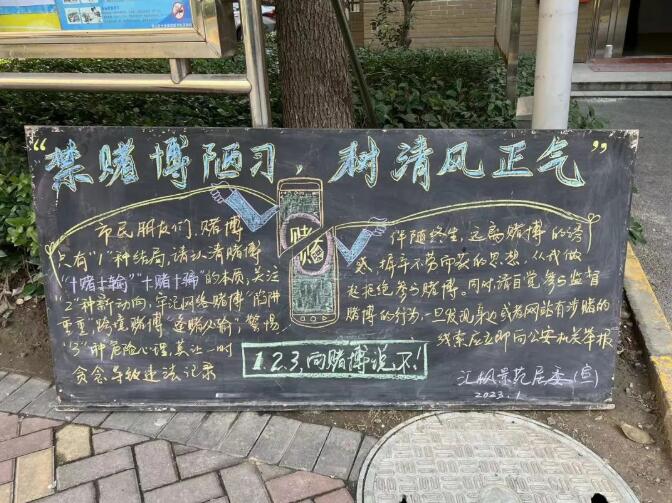 “禁赌博陋习，树清风正气”
市民朋友们，赌博
只有“1”种结局，请认清赌博
“十赌十输”“十赌十骗”的本质，关注
“2”种新动向，牢记网络赌博“的陷
阱重重，跨境赌博“逢赌必输”，警惕
“3”种危险心理，莫让一时
贪念导致违法记录
伴随终生，远离赌博的诱
惑，摒弃不劳而获的思想，从我做
起拒绝参与赌博。同时，请自觉参与监督
赌博的行为，一旦发现身边或者网站有涉赌的
线索应立即向公安机关举报
赌
1.2.3,向赌博说不!
江枫景苑居委(宣)
2023.1